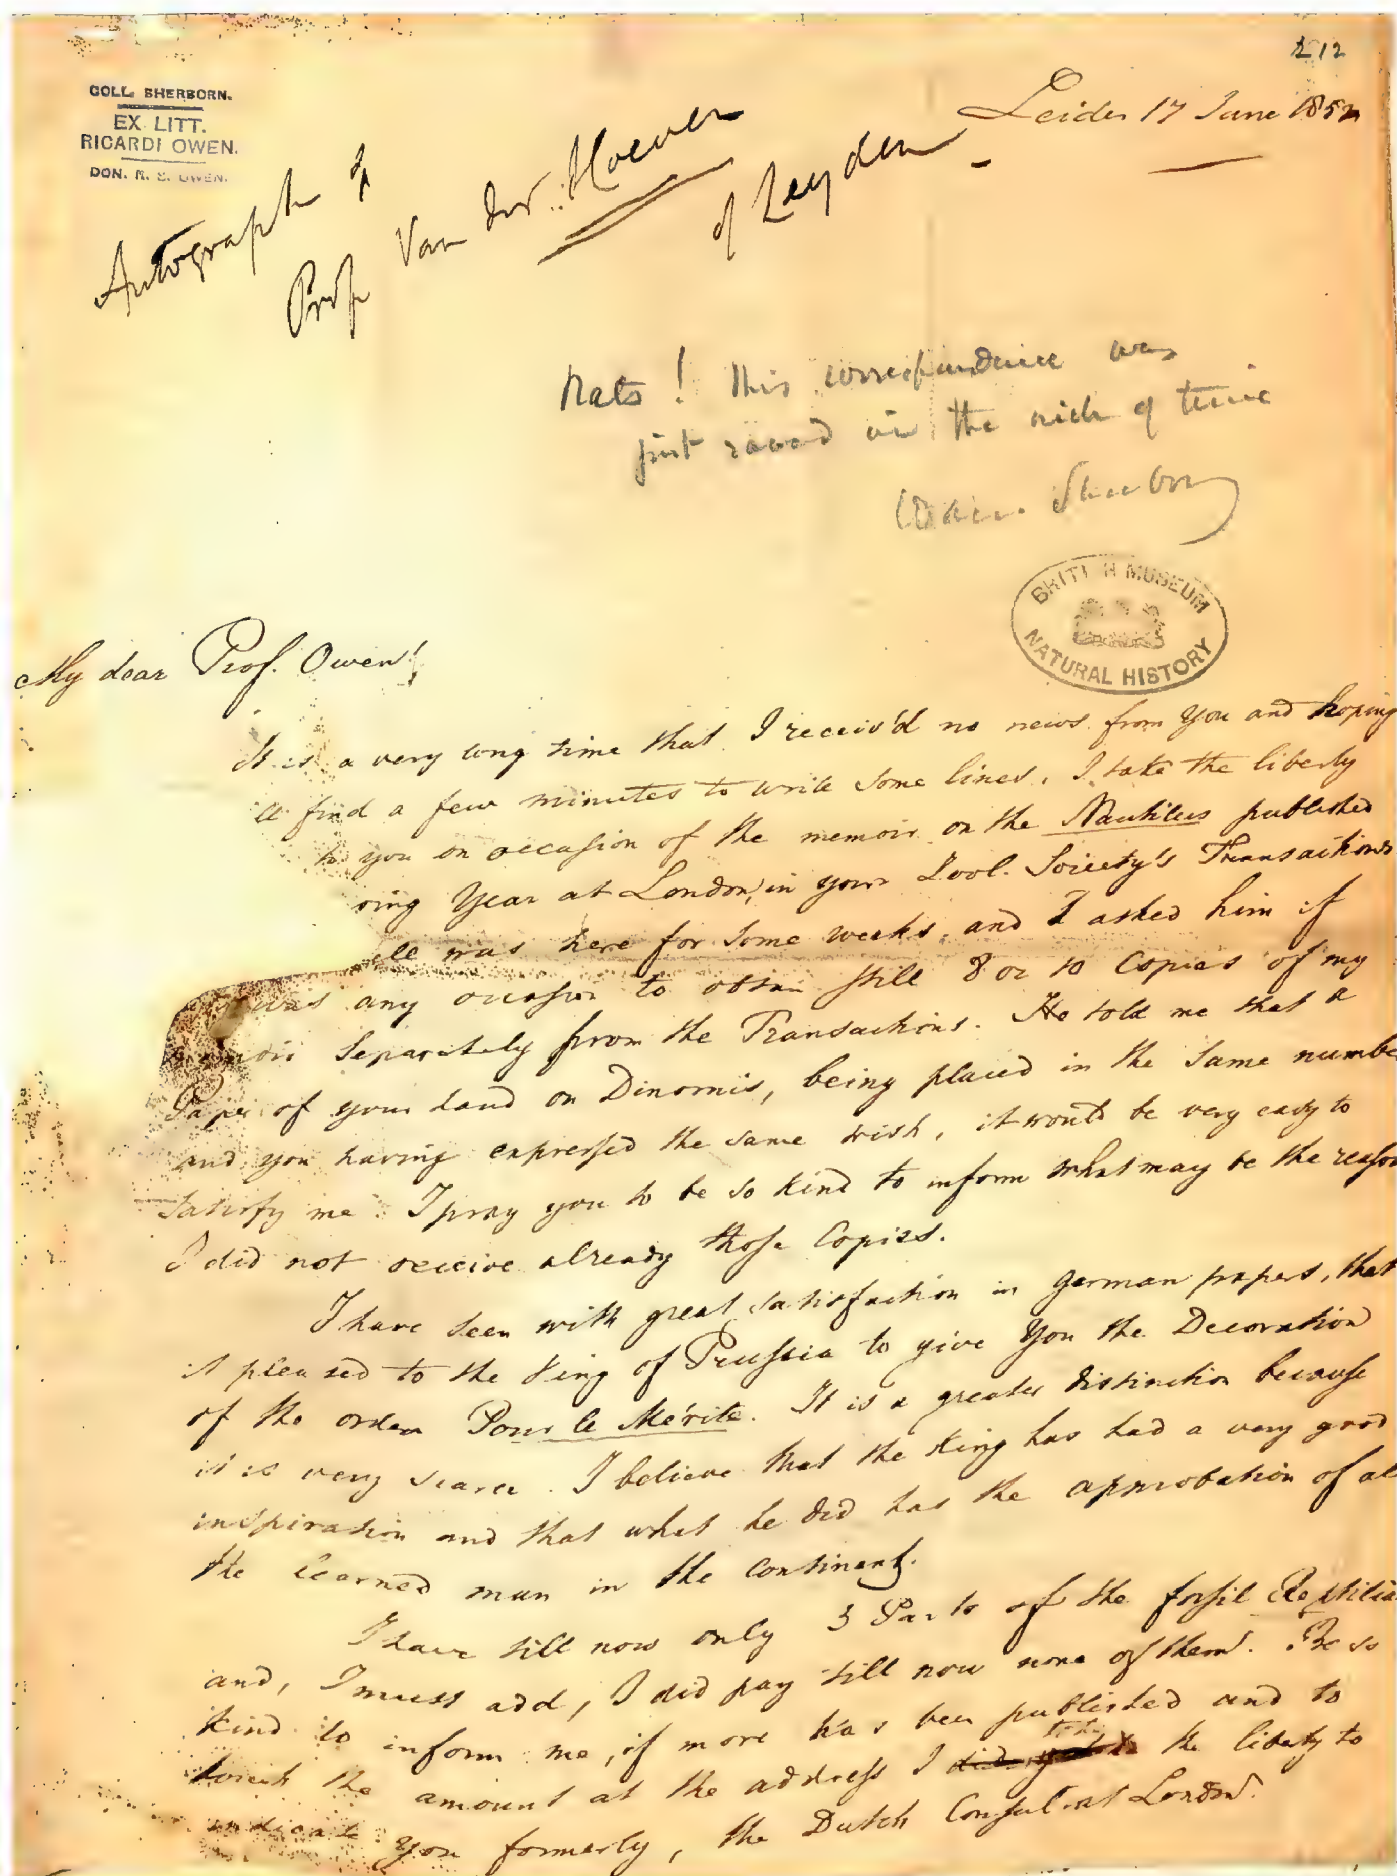 212
COLL. SHERBORN.
EX LITT.
RICARDI OWEN.
DON. R. S. OWEN.
Leiden 17 June 1852
Autograph of
Prof Van der Hoeven
of Leyden
Rats! This correspondence was
just saved in the nick of time
Sherborn
BRITISH MUSEUM
NATURAL HISTORY
My dear Prof. Owen!
It is a very long time that I receiv'd no news from you and hoping
find a few minutes to write some lines, I take the liberty
to you on occasion of the memoir on the Nautilus published
oing Year at London, in your Zool. Society's Transactions
was here for some weeks, and I asked him if
was any occasion to obtain still 8 or 10 Copies of my
memoir separately from the Transactions. He told me that a
Paper of your hand on Dinornis, being placed in the same number
and you having expressed the same wish, it would be very easy to
satisfy me. I pray you to be so kind to inform what may be the reason
I did not receive already those Copies.
I have seen with great satisfaction in german papers, that
it pleased to the King of Prussia to give You the Decoration
of the order Pour le Mérite. It is a greater distinction because
it is very scarce. I believe that the King has had a very good
inspiration and that what he did has the approbation of all
the learned man in the Continent.
I have till now only 3 Parts of the fossil Reptilia
and, I must add, I did pay till now none of them. Be so
kind to inform me, if more has been published and to
the amount at the address I take the liberty to
indicate you formerly, the Dutch Consul at London.